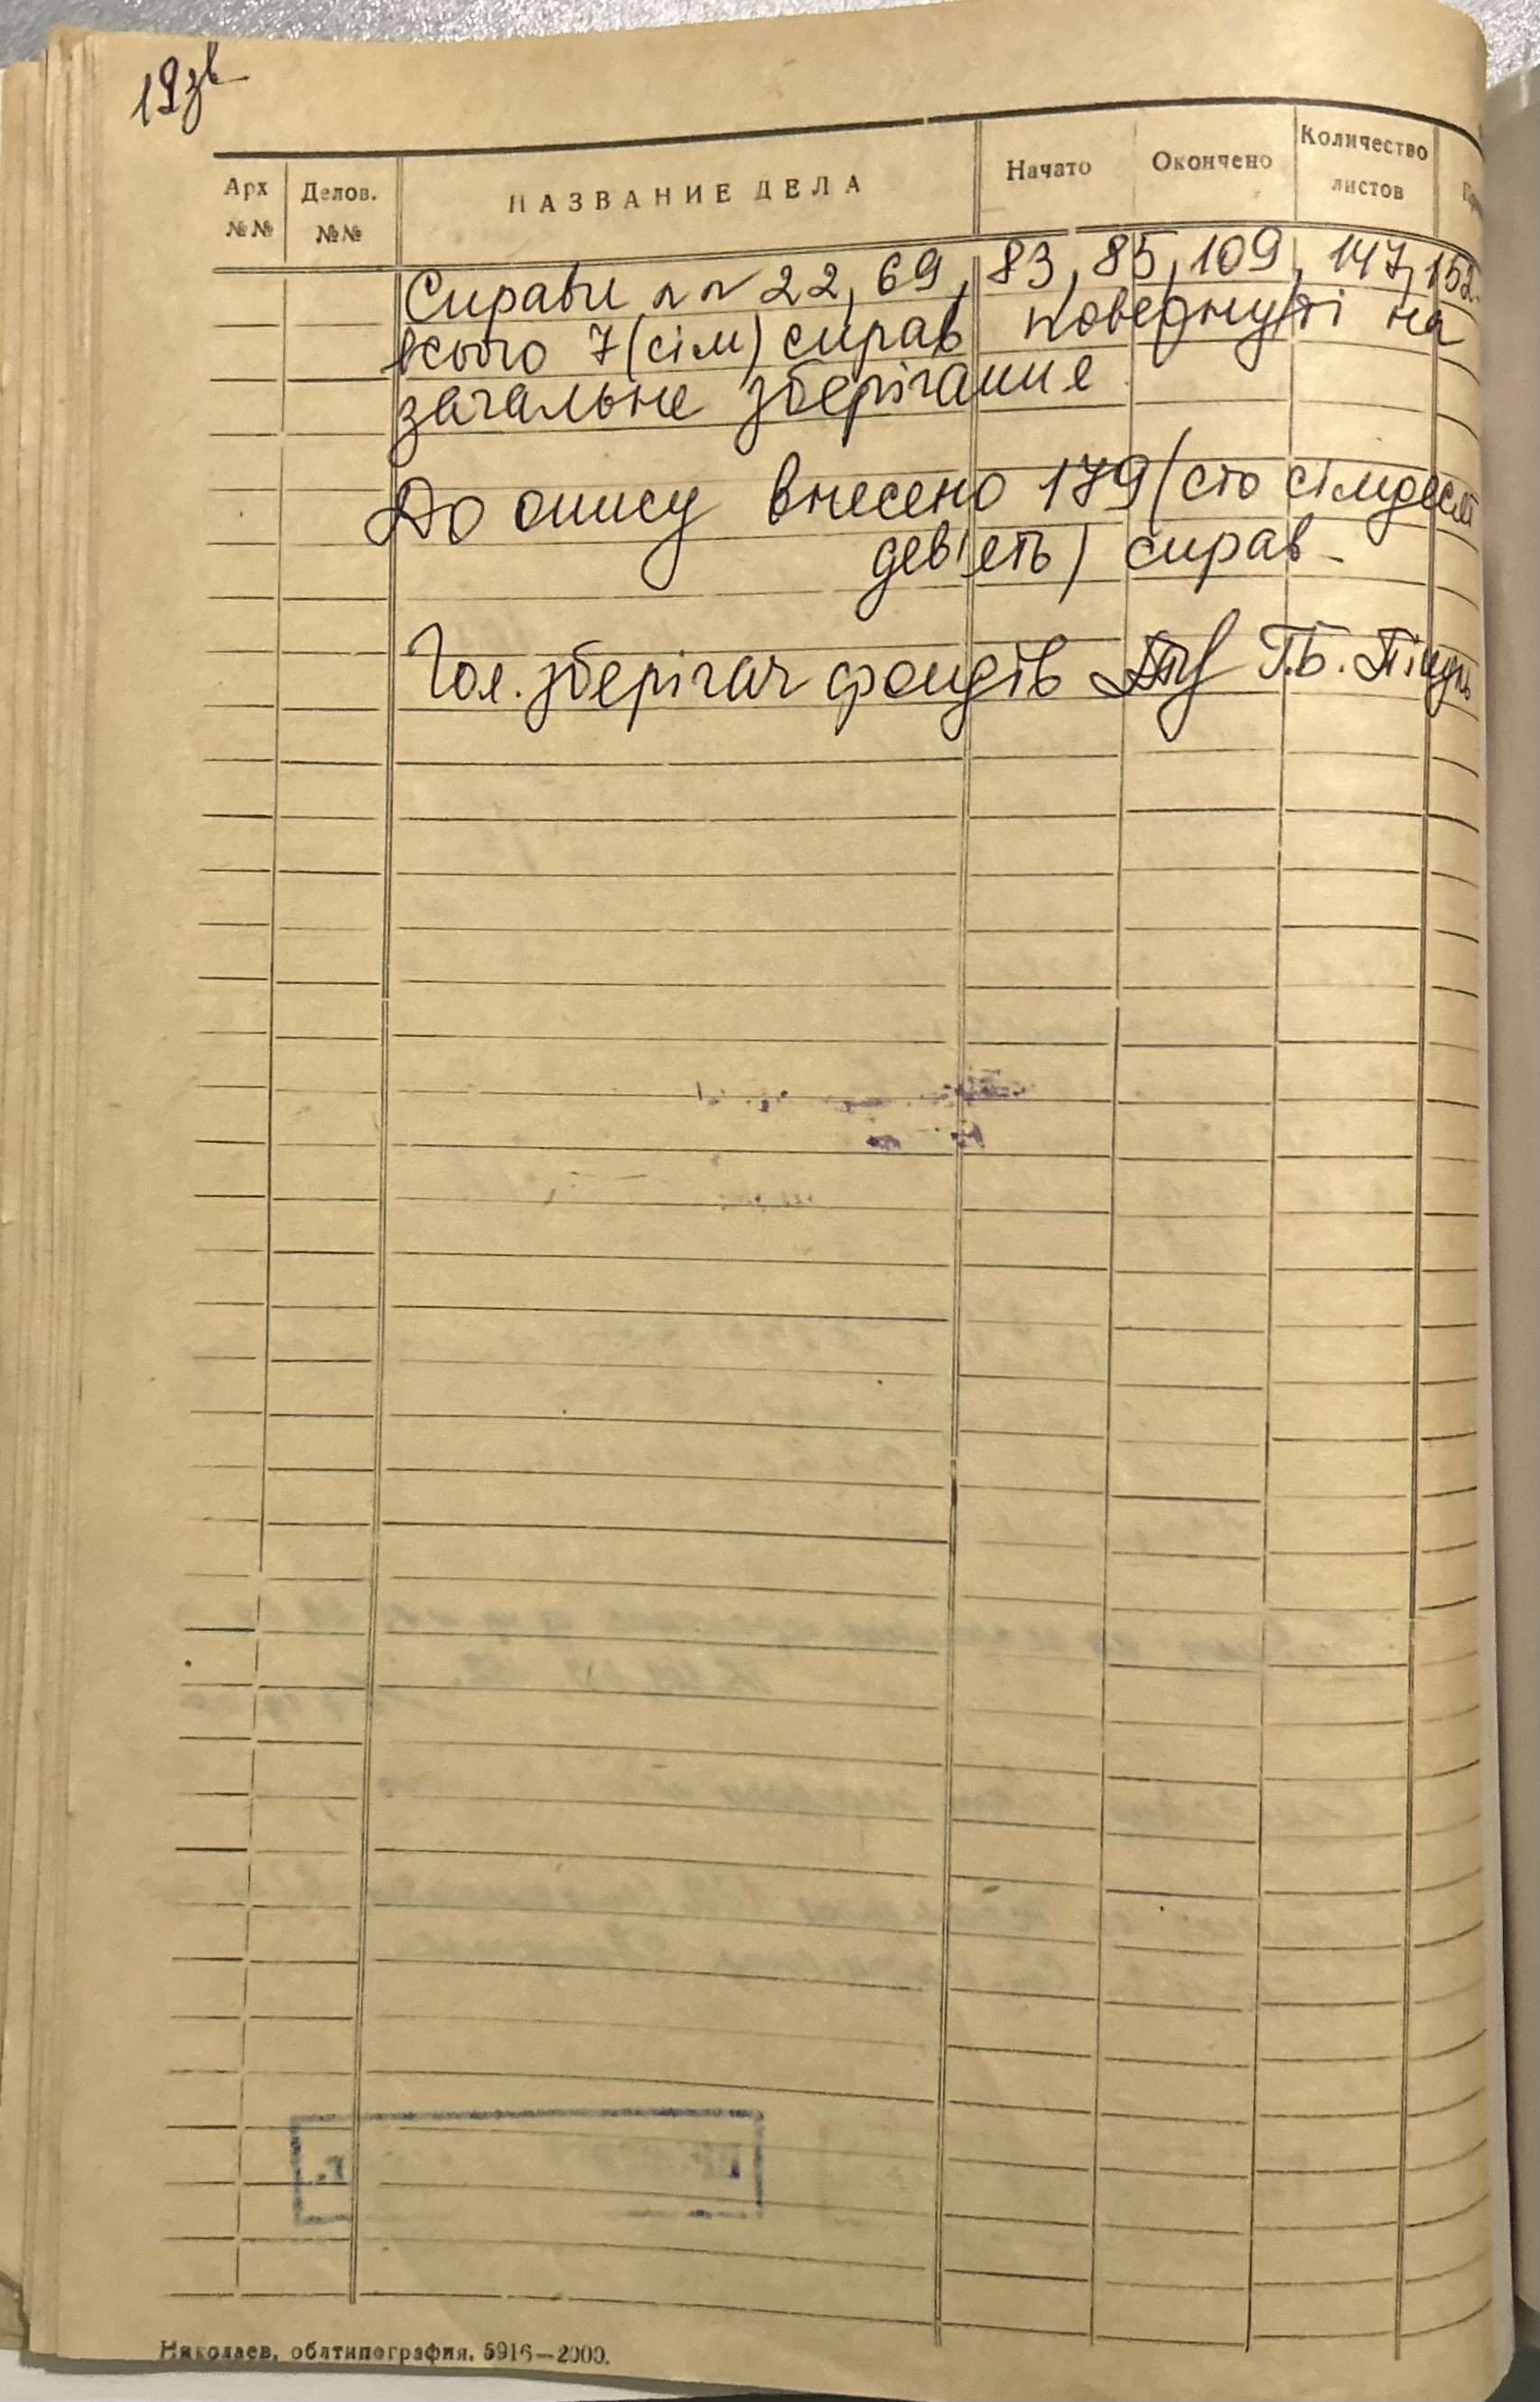 19зв
Арх №№
Делов. №№
НАЗВАНИЕ ДЕЛА
Начато
Окончено
Количество листов
Справи №№ 22, 69, 83, 85, 109, 147, 152
всього 7 (сім) справ повернуті на
загальне зберігання
До опису внесено 179 (сто сімдесят
дев'еть) справ
Гол. зберігач фондів Г.Б.
Николаев, облтипография. 5916—2000.